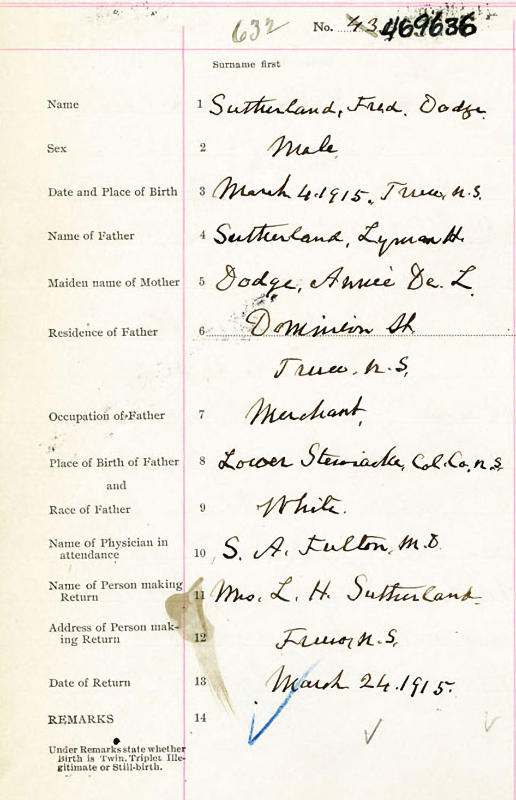 632 No. 43 469636
Surname first
Name 1 Sutherland, Fred. Dodge
Sex 2 Male
Date and Place of Birth 3 March 4. 1915, Truro, N.S.
Name of Father 4 Sutherland, Lyman H.
Maiden name of Mother 5 Dodge, Annie De. L.
Residence of Father 6 Dominion St
Truro, N.S.
Occupation of Father 7 Merchant
Place of Birth of Father 8 Lower Stewiacke, Col. Co, N.S.
and
Race of Father 9 White.
Name of Physician in
attendance 10 S. A. Fulton, M.D.
Name of Person making
Return 11 Mrs. L. H. Sutherland
Address of Person mak-
ing Return 12 Truro, N.S.
Date of Return 13 March 24. 1915.
REMARKS 14
Under Remarks state whether
Birth is Twin, Triplet, Ille-
gitimate or Still-birth.